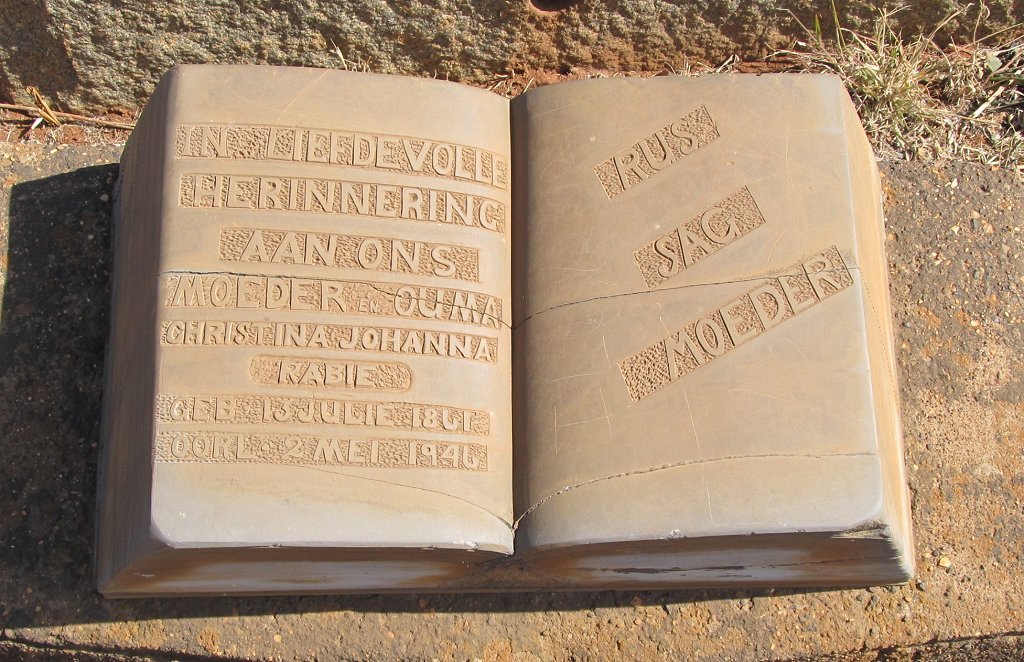 IN LIEFDEVOLLE
HERINNERING
AAN ONS
MOEDER EN OUMA
CHRISTINA JOHANNA
RABIE
GEB. 13 JULIE 1861
OORL. 2 MEI 1946
RUS
SAG
MOEDER